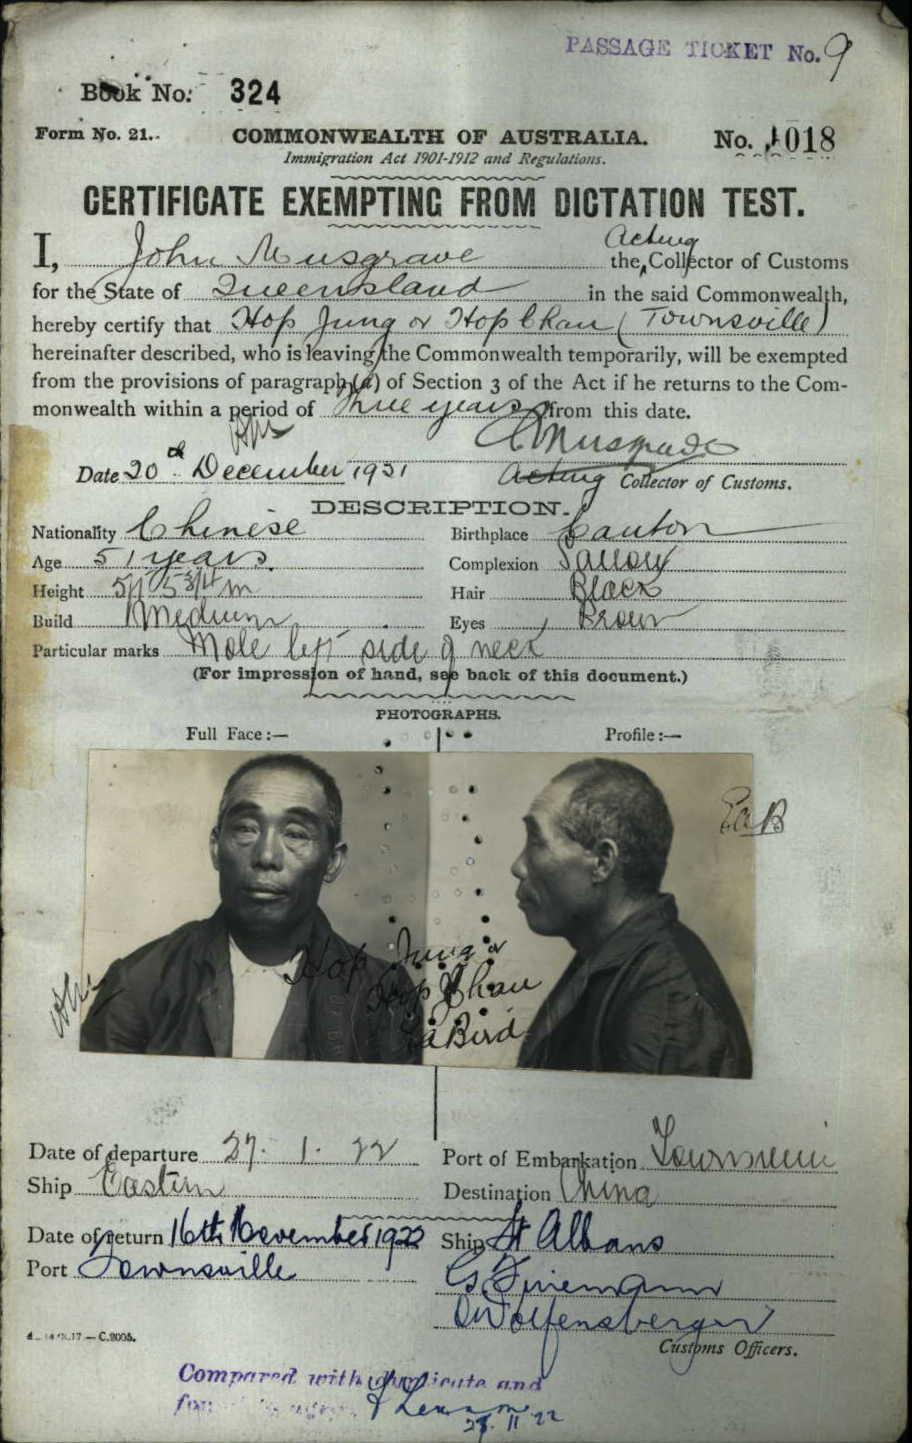 PASSAGE TICKET No. 9
Book No: 324
Form No. 21. COMMONWEALTH OF AUSTRALIA. No. 1018
Immigration Act 1901-1912 and Regulations.
CERTIFICATE EXEMPTING FROM DICTATION TEST.
Acting
I, John Musgrave the Collector of Customs
for the State of Queensland in the said Commonwealth,
hereby certify that Hop Jung or Hop Chan (Townsville)
hereinafter described, who is leaving the Commonwealth temporarily, will be exempted
from the provisions of paragraph (a) of Section 3 of the Act if he returns to the Com-
monwealth within a period of Three years from this date.
Musgrave
Date 20th December 1921 Acting Collector of Customs.
DESCRIPTION.
Nationality Chinese Birthplace Canton
Age 51 years Complexion Sallow
Height 5ft 5 3/4 in Hair Black
Build Medium Eyes Brown
Particular marks Mole left side of neck
(For impression of hand, see back of this document.)
PHOTOGRAPHS.
Full Face:— Profile:—
Hop Jung or
Hop Chan
Bird
Date of departure 27. 1. 22 Port of Embarkation Townsville
Ship Eastern Destination China
Date of return 16th November 1922 Ship St Albans
Port Townsville
Wolfensberger
Customs Officers.
17—C.2005.
Compared with duplicate and
28.11.22